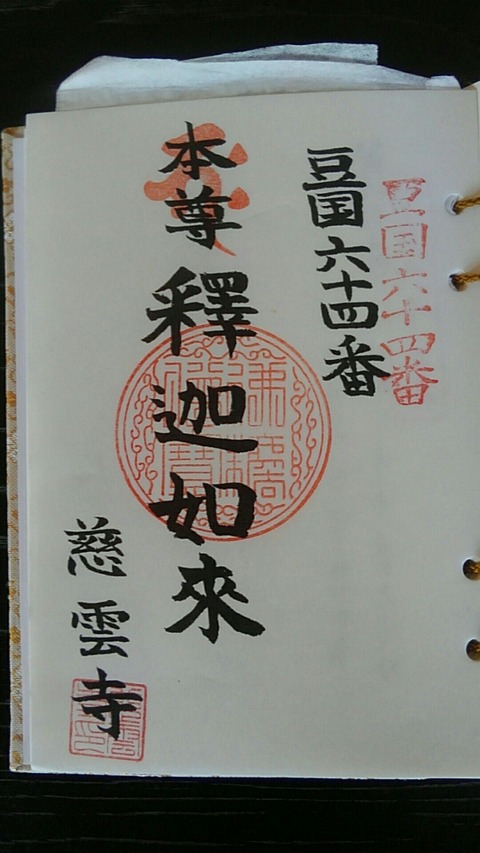 豆国六十四番
豆国六十四番
本尊
釋迦如來
慈雲寺